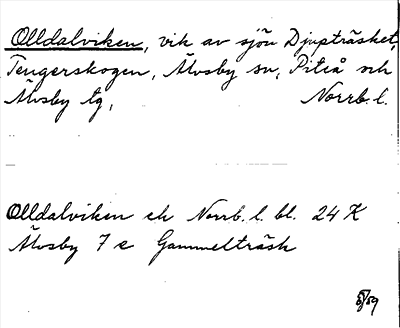 Olldalviken, vik av sjön Djupträsket,
Tengerskogen, Älvsby sn, Piteå och
Älvsby tg, Norrb. l.
Olldalviken ek Norrb. l. bl. 24 K
Älvsby 7 e Gammelträsk
/59